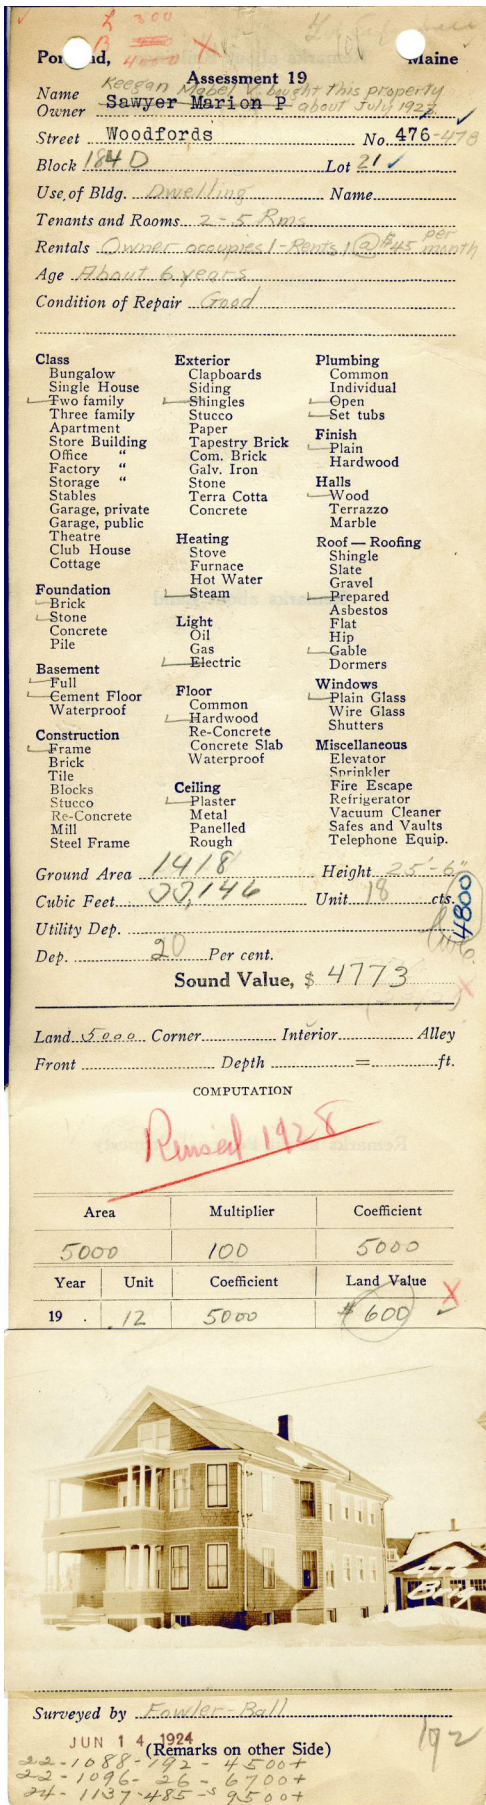 L 300
B
4000
Portland, Maine
Assessment 19
Keegan Mabel V. bought this property
Name
Owner Sawyer Marion P about July 1922
Street Woodfords No. 476-478
Block 184 D Lot 21
Use of Bldg. Dwelling Name
Tenants and Rooms 2-5 Rms
Rentals Owner occupies 1-Rents 1 @ $45 per month
Age About 6 years
Condition of Repair Good
Class
Bungalow
Single House
Two family
Three family
Apartment
Store Building
Office "
Factory "
Storage "
Stables
Garage, private
Garage, public
Theatre
Club House
Cottage
Foundation
Brick
Stone
Concrete
Pile
Basement
Full
Cement Floor
Waterproof
Construction
Frame
Brick
Tile
Blocks
Stucco
Re-Concrete
Mill
Steel Frame
Exterior
Clapboards
Siding
Shingles
Stucco
Paper
Tapestry Brick
Com. Brick
Galv. Iron
Stone
Terra Cotta
Concrete
Heating
Stove
Furnace
Hot Water
Steam
Light
Oil
Gas
Electric
Floor
Common
Hardwood
Re-Concrete
Concrete Slab
Waterproof
Ceiling
Plaster
Metal
Panelled
Rough
Plumbing
Common
Individual
Open
Set tubs
Finish
Plain
Hardwood
Halls
Wood
Terrazzo
Marble
Roof — Roofing
Shingle
Slate
Gravel
Prepared
Asbestos
Flat
Hip
Gable
Dormers
Windows
Plain Glass
Wire Glass
Shutters
Miscellaneous
Elevator
Sprinkler
Fire Escape
Refrigerator
Vacuum Cleaner
Safes and Vaults
Telephone Equip.
Ground Area 1418 Height 25'-6"
Cubic Feet 33,146 Unit 18 cts.
4800
Utility Dep.
Dep. 20 Per cent.
Sound Value, $ 4773
Land 5000 Corner Interior Alley
Front Depth = ft.
COMPUTATION
Revised 1928
Area Multiplier Coefficient
5000 100 5000
Year Unit Coefficient Land Value
19 12 5000 $600
476
Surveyed by Fowler-Ball
JUN 14 1924
(Remarks on other Side)
192
22-1088-192-4500+
22-1096-26-6700+
24-1137-485-$9500+